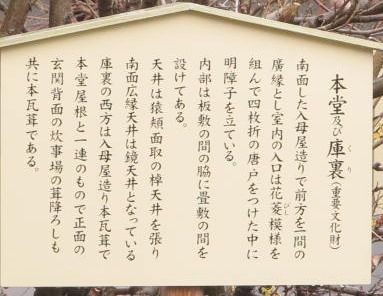 本堂及び庫裏(重要文化財)
くり
南面した入母屋造りで前方を一間の
廣縁とし室内の入口は花菱模様を
びし
組んで四枚折の唐戸をつけた中に
明障子を立ている。
内部は板敷の間の脇に畳敷の間を
設けてある。
天井は猿頬面取の棹天井を張り
南面広縁天井は鏡天井となっている
庫裏の西方は入母屋造り本瓦葺で
本堂屋根と一連のもので正面の
玄関背面の炊事場の葺降ろしも
共に本瓦葺である。